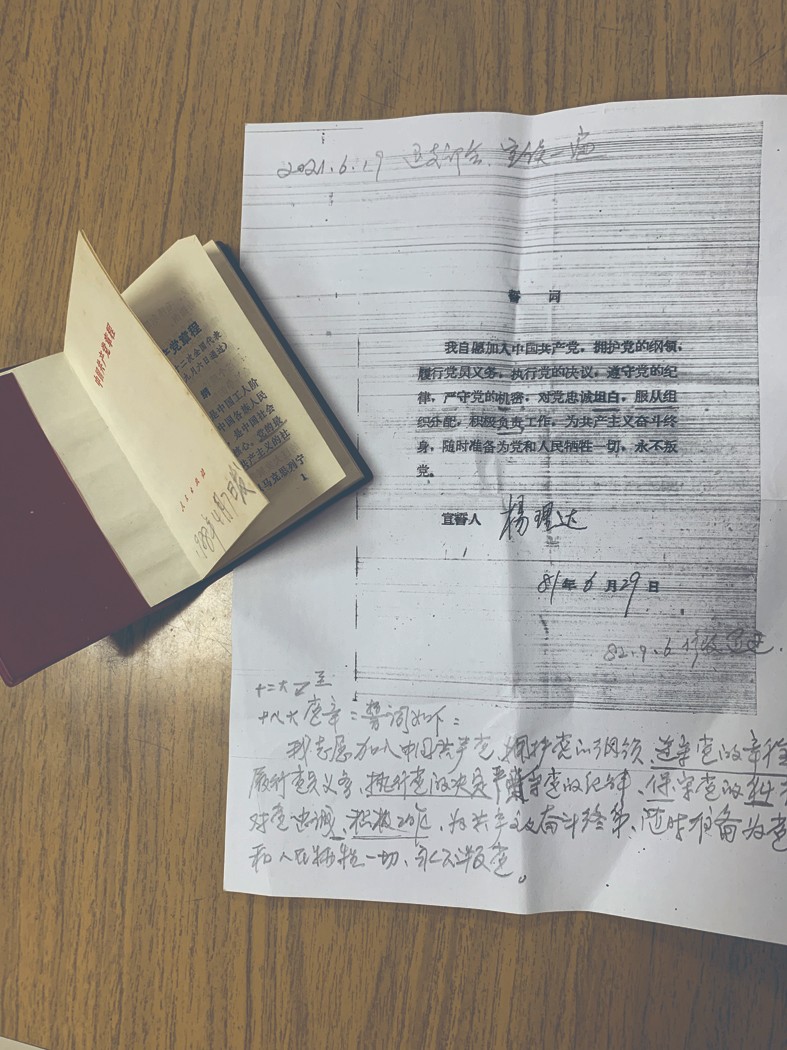 中国共产党章程
人民出版社
1988年4月7日
产党章程
十二次全国代表
九月六日通过)
纲
是中国工人阶
中国各族人民
是中国社会
核心。党的最
共产主义的社
以马克思列宁
1
2021.6.19 支部会、宣读一遍
誓 词
我自愿加入中国共产党，拥护党的纲领，
履行党员义务，执行党的决议，遵守党的纪
律，严守党的机密，对党忠诚坦白，服从组
织分配，积极负责工作，为共产主义奋斗终
身，随时准备为党和人民牺牲一切，永不叛
党。
宣誓人 杨理达
81年6月29日
82.9.6修改通过.
十二大至
十八大党章：誓词如下：
我志愿加入中国共产党、拥护党的纲领、遵守党的章程
履行党员义务、执行党的决定 严守党的纪律、保守党的
对党忠诚、积极工作、为共产主义奋斗终身、随时准备为党
和人民牺牲一切、永不叛党。